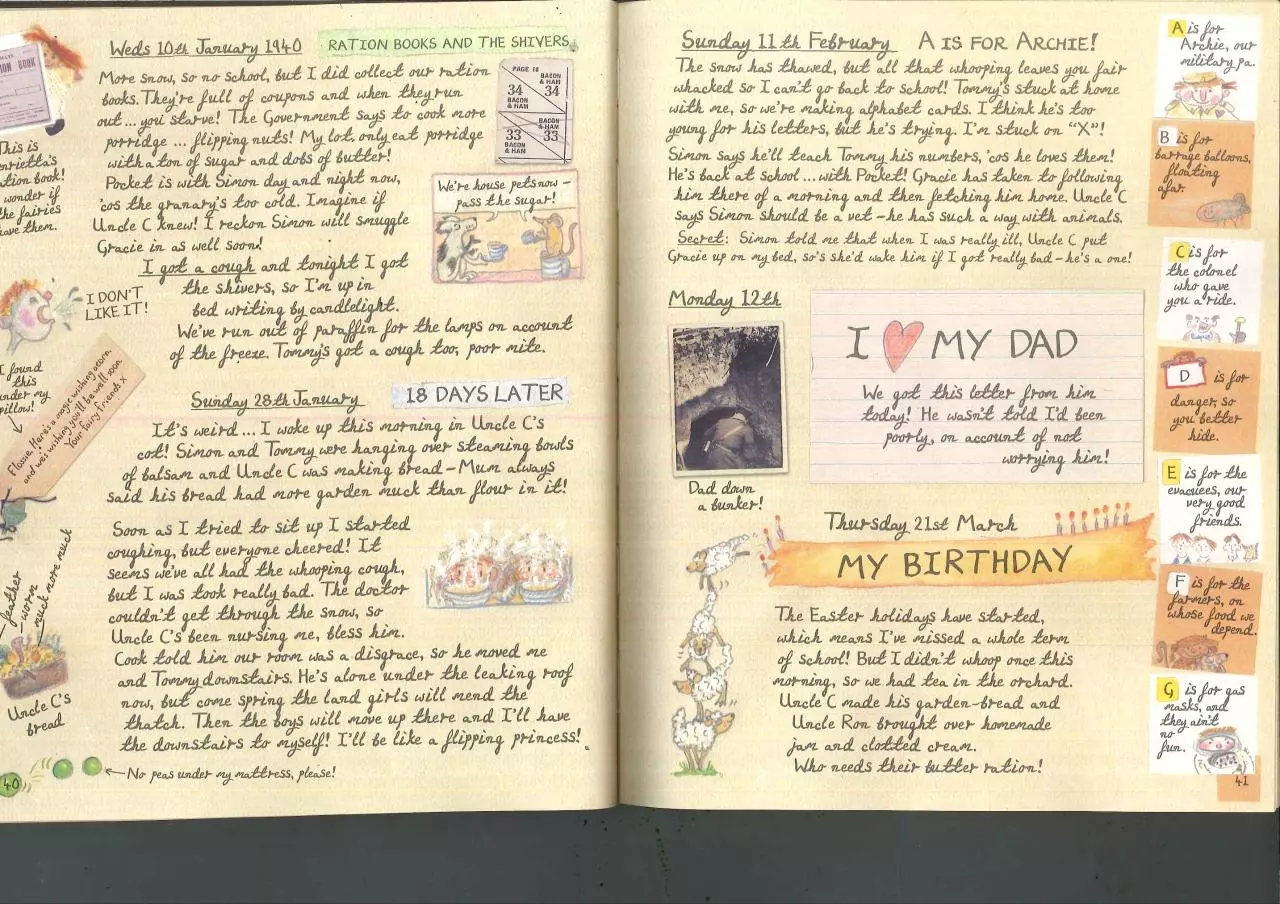 Weds 10th January 1940
RATION BOOKS AND THE SHIVERS
More snow, so no school, but I did collect our ration
books. They're full of coupons and when they run
out ... you starve! The Government says to cook more
porridge ... flipping nuts! My lot, only eat porridge
with a ton of sugar and dobs of butter!
Pocket is with Simon day and night now,
'cos the granary's too cold. Imagine if
Uncle C knew! I reckon Simon will smuggle
Gracie in as well soon!
PAGE 18
BACON & HAM
34
34
BACON & HAM
BACON & HAM
33
33
BACON & HAM
We're house pets now –
pass the sugar!
ION BOOK
This is
enrietta's
ation book!
wonder if
the fairies
have them.
I got a cough and tonight I got
the shivers, so I'm up in
bed writing by candlelight.
We've run out of paraffin for the lamps on account
of the freeze. Tommy's got a cough too, poor mite.
I DON'T
LIKE IT!
I found
this
under my
pillow!
Flossie! Here's a magic wishing acorn,
and we're wishing you'll be well soon.
Your fairy friends x
Sunday 28th January
18 DAYS LATER
It's weird ... I woke up this morning in Uncle C's
cot! Simon and Tommy were hanging over steaming bowls
of balsam and Uncle C was making bread – Mum always
said his bread had more garden muck than flour in it!
Soon as I tried to sit up I started
coughing, but everyone cheered! It
seems we've all had the whooping cough,
but I was took really bad. The doctor
couldn't get through the snow, so
Uncle C's been nursing me, bless him.
Cook told him our room was a disgrace, so he moved me
and Tommy downstairs. He's alone under the leaking roof
now, but come spring the land girls will mend the
thatch. Then the boys will move up there and I'll have
the downstairs to myself! I'll be like a flipping princess!
feather
worm
muck more muck
Uncle C's
bread
No peas under my mattress, please!
40
Sunday 11th February
A IS FOR ARCHIE!
The snow has thawed, but all that whooping leaves you fair
whacked so I can't go back to school! Tommy's stuck at home
with me, so we're making alphabet cards. I think he's too
young for his letters, but he's trying. I'm stuck on "X"!
Simon says he'll teach Tommy his numbers, 'cos he loves them!
He's back at school ... with Pocket! Gracie has taken to following
him there of a morning and then fetching him home. Uncle C
says Simon should be a vet – he has such a way with animals.
Secret: Simon told me that when I was really ill, Uncle C put
Gracie up on my bed, so's she'd wake him if I got really bad – he's a one!
Monday 12th
I MY DAD
We got this letter from him
today! He wasn't told I'd been
poorly, on account of not
worrying him!
Dad down
a bunker!
Thursday 21st March
MY BIRTHDAY
The Easter holidays have started,
which means I've missed a whole term
of school! But I didn't whoop once this
morning, so we had tea in the orchard.
Uncle C made his garden-bread and
Uncle Ron brought over homemade
jam and clotted cream.
Who needs their butter ration!
A is for
Archie, our
military pa.
B is for
barrage balloons,
floating
afar.
C is for
the colonel
who gave
you a ride.
D is for
danger, so
you better
hide.
E is for the
evacuees, our
very good
friends.
F is for the
farmers, on
whose food we
depend.
G is for gas
masks, and
they ain't
no
fun.
41